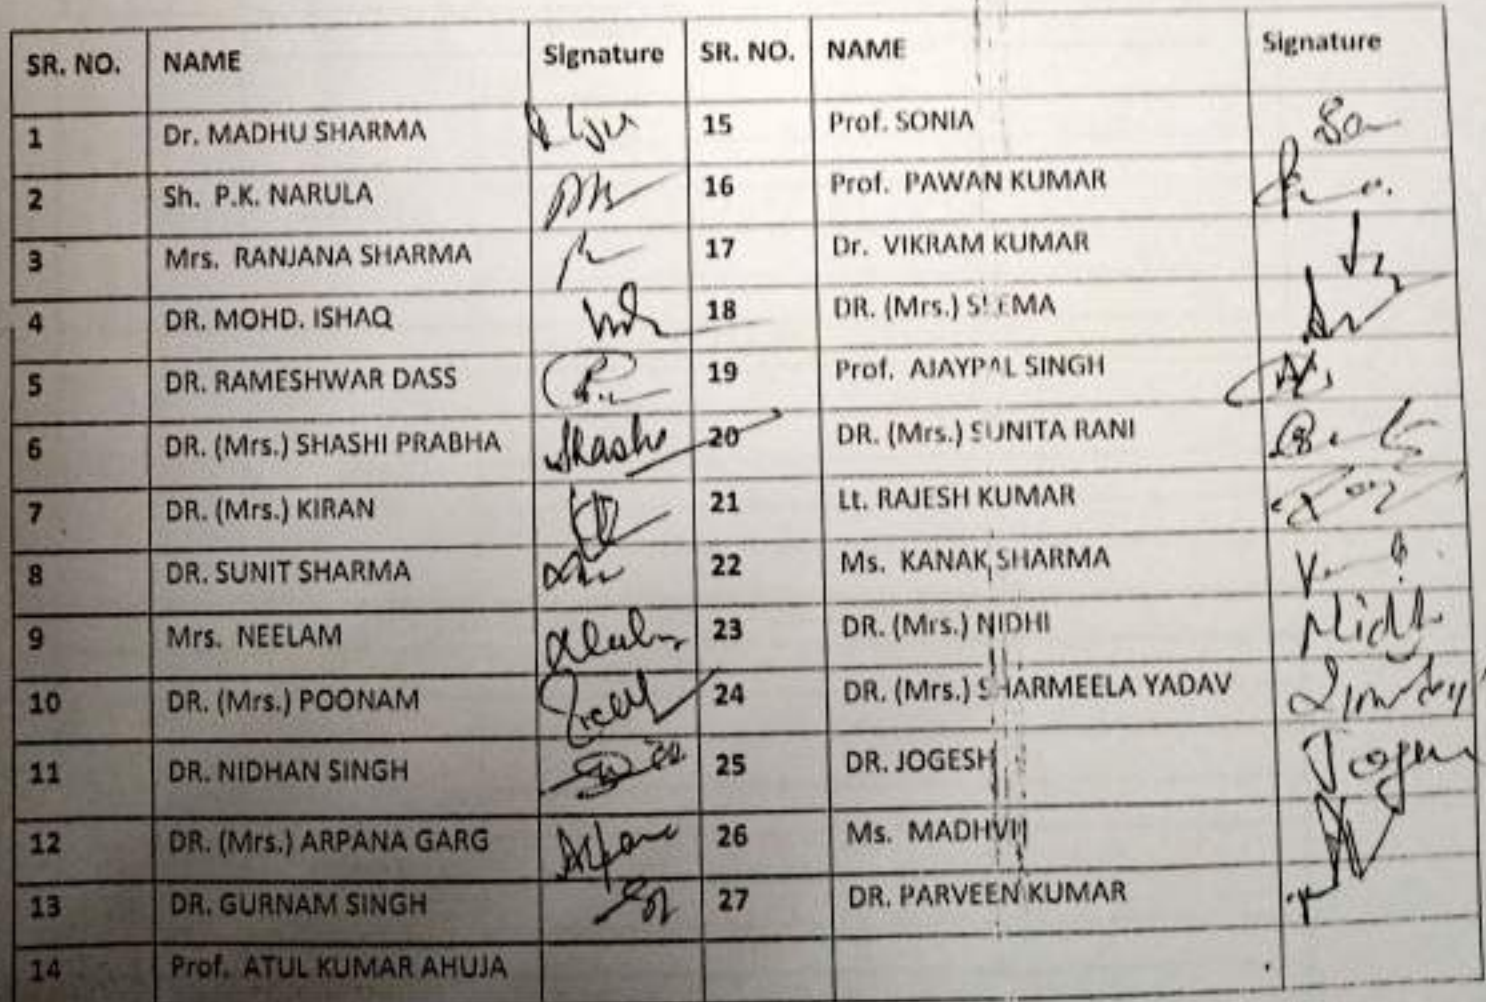 SR. NO. NAME Signature SR. NO. NAME Signature
1 Dr. MADHU SHARMA 15 Prof. SONIA
2 Sh. P.K. NARULA 16 Prof. PAWAN KUMAR
3 Mrs. RANJANA SHARMA 17 Dr. VIKRAM KUMAR
4 DR. MOHD. ISHAQ 18 DR. (Mrs.) SEEMA
5 DR. RAMESHWAR DASS 19 Prof. AJAYPAL SINGH
6 DR. (Mrs.) SHASHI PRABHA Shashi 20 DR. (Mrs.) SUNITA RANI
7 DR. (Mrs.) KIRAN 21 Lt. RAJESH KUMAR
8 DR. SUNIT SHARMA 22 Ms. KANAK SHARMA
9 Mrs. NEELAM 23 DR. (Mrs.) NIDHI Nidhi
10 DR. (Mrs.) POONAM 24 DR. (Mrs.) SHARMEELA YADAV
11 DR. NIDHAN SINGH 25 DR. JOGESH
12 DR. (Mrs.) ARPANA GARG Arpana 26 Ms. MADHVI
13 DR. GURNAM SINGH 27 DR. PARVEEN KUMAR
14 Prof. ATUL KUMAR AHUJA